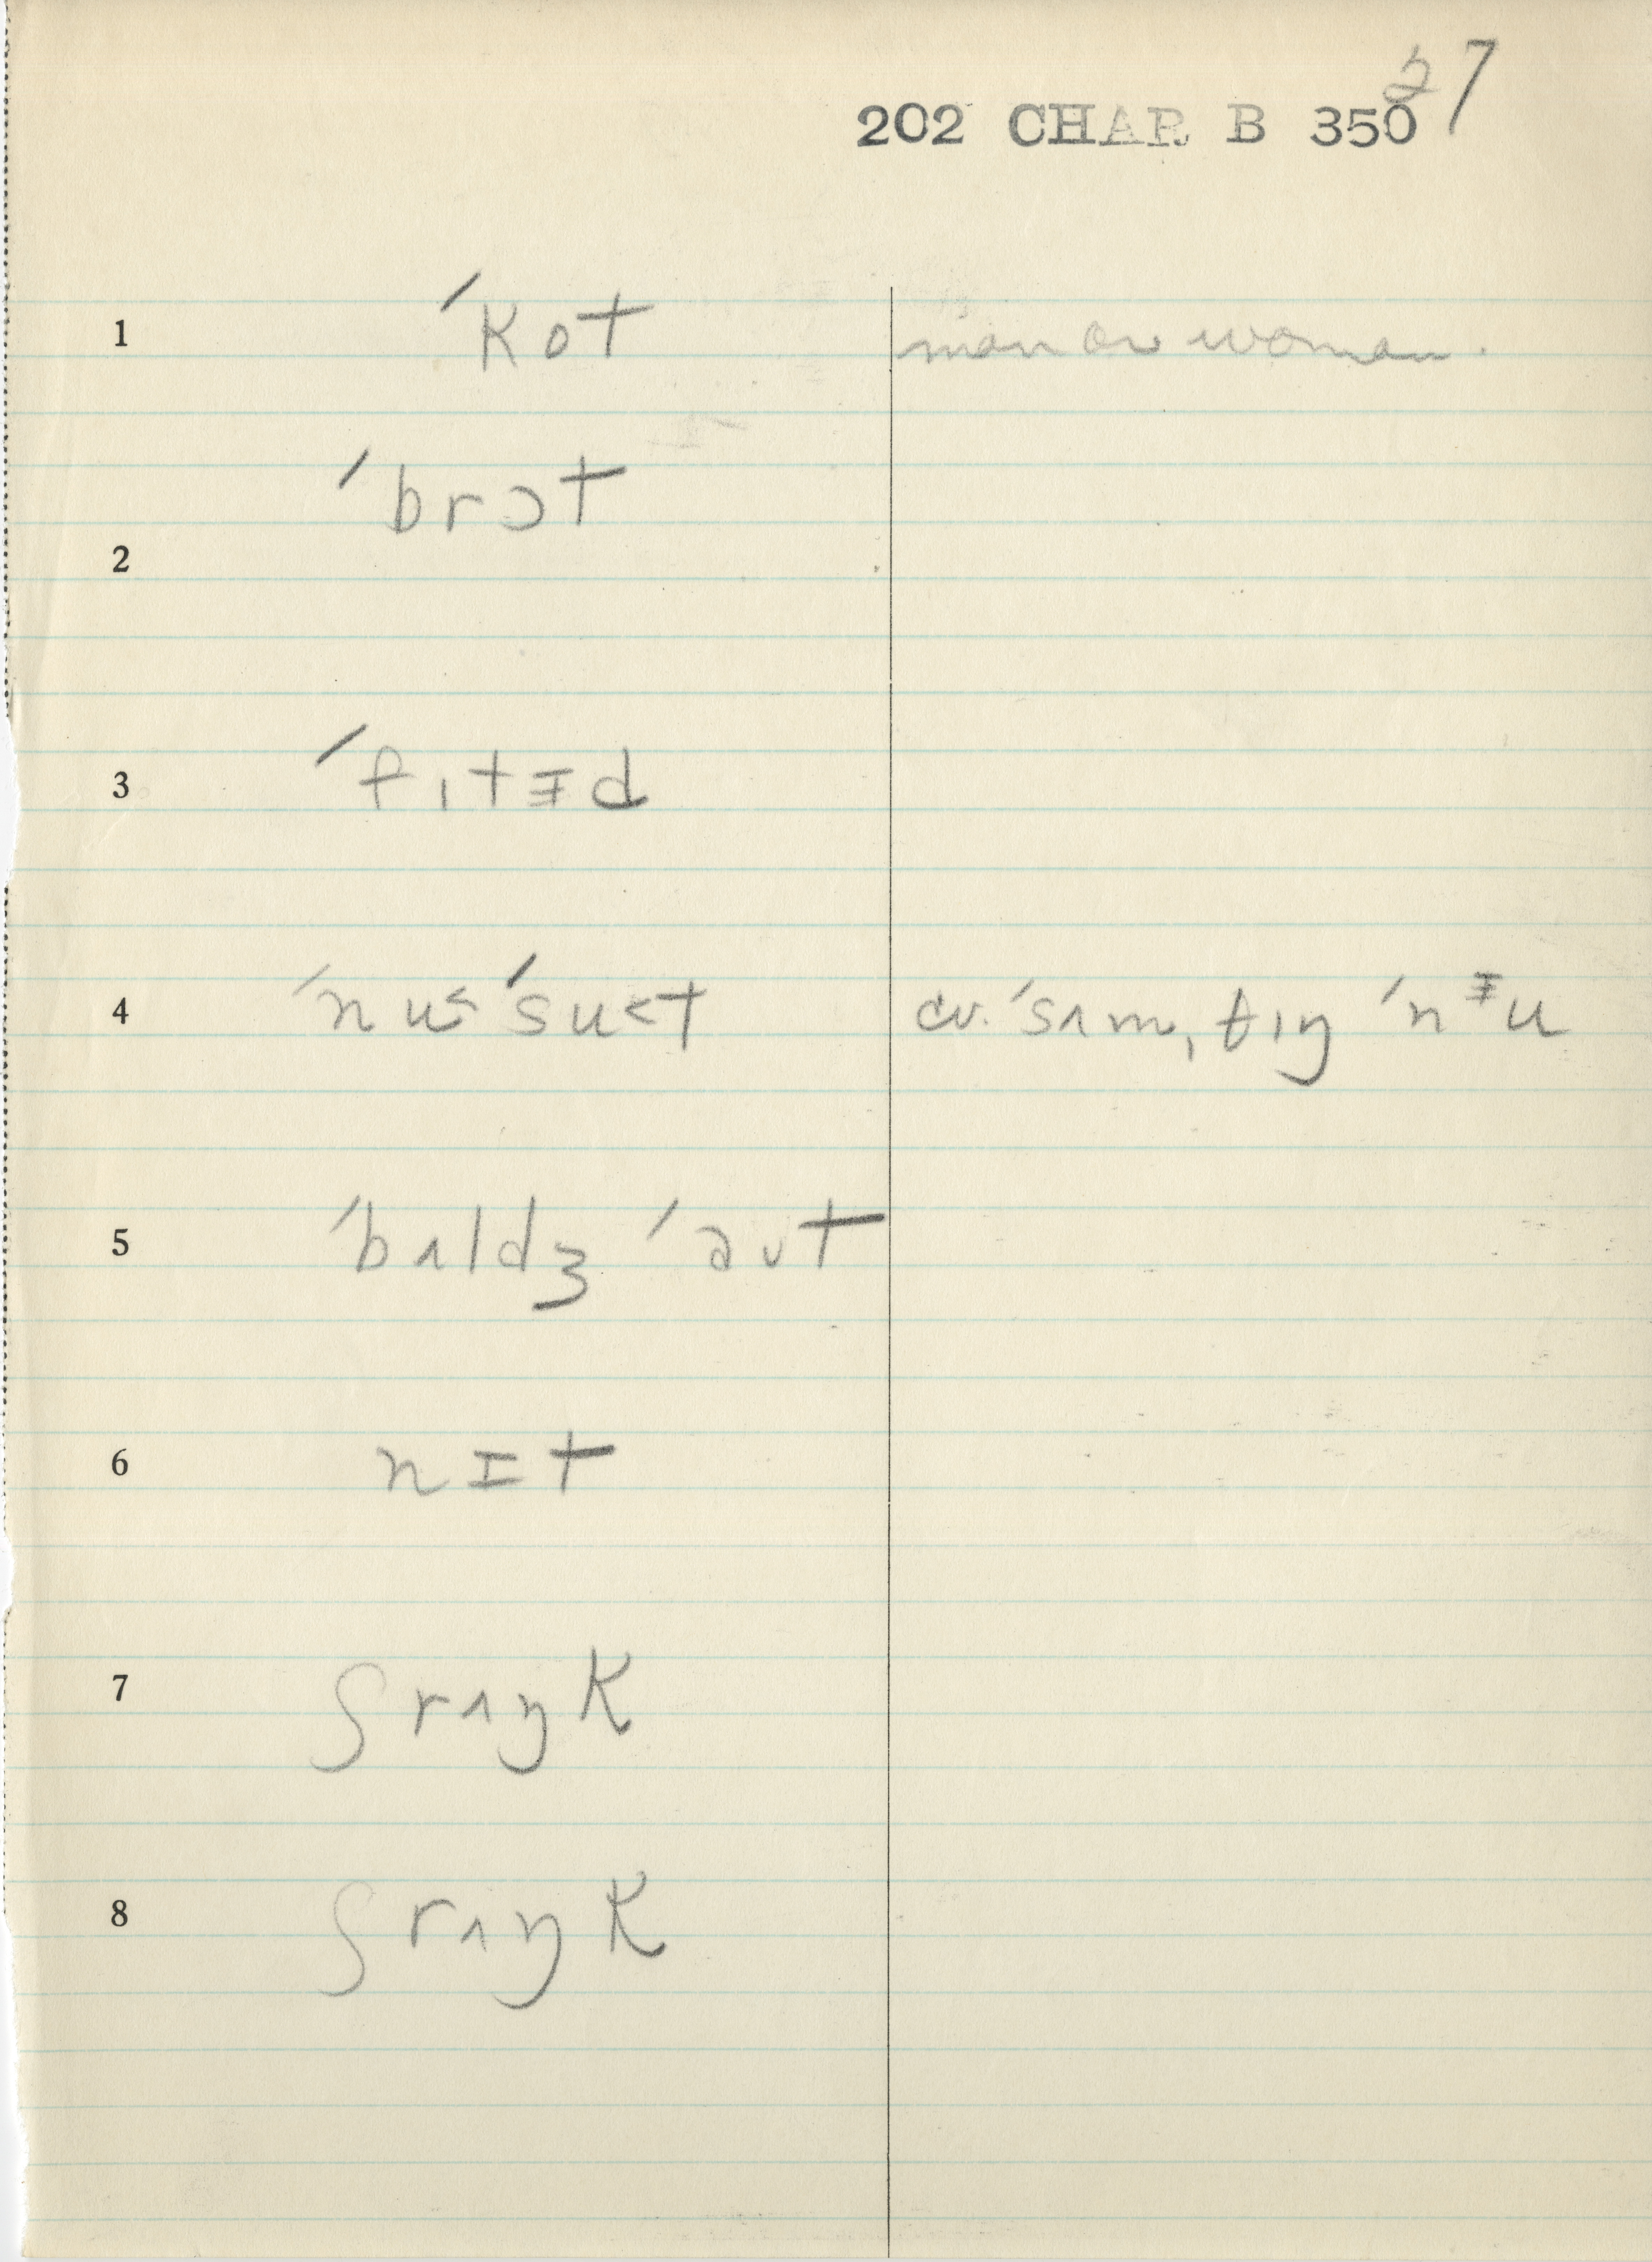 27
202 CHAR B 350
1 ˈkot man or woman.
2 ˈbrɔt
3 ˈfɩtɪ̵d
4 ˈnu˂ ˈsu˂t cv. ˈsʌmˌθɩŋ ˈnᵻu
5 ˈbʌldʒ ˈaʊt
6 nɪt
7 ʃrʌŋk
8 ʃrʌŋk